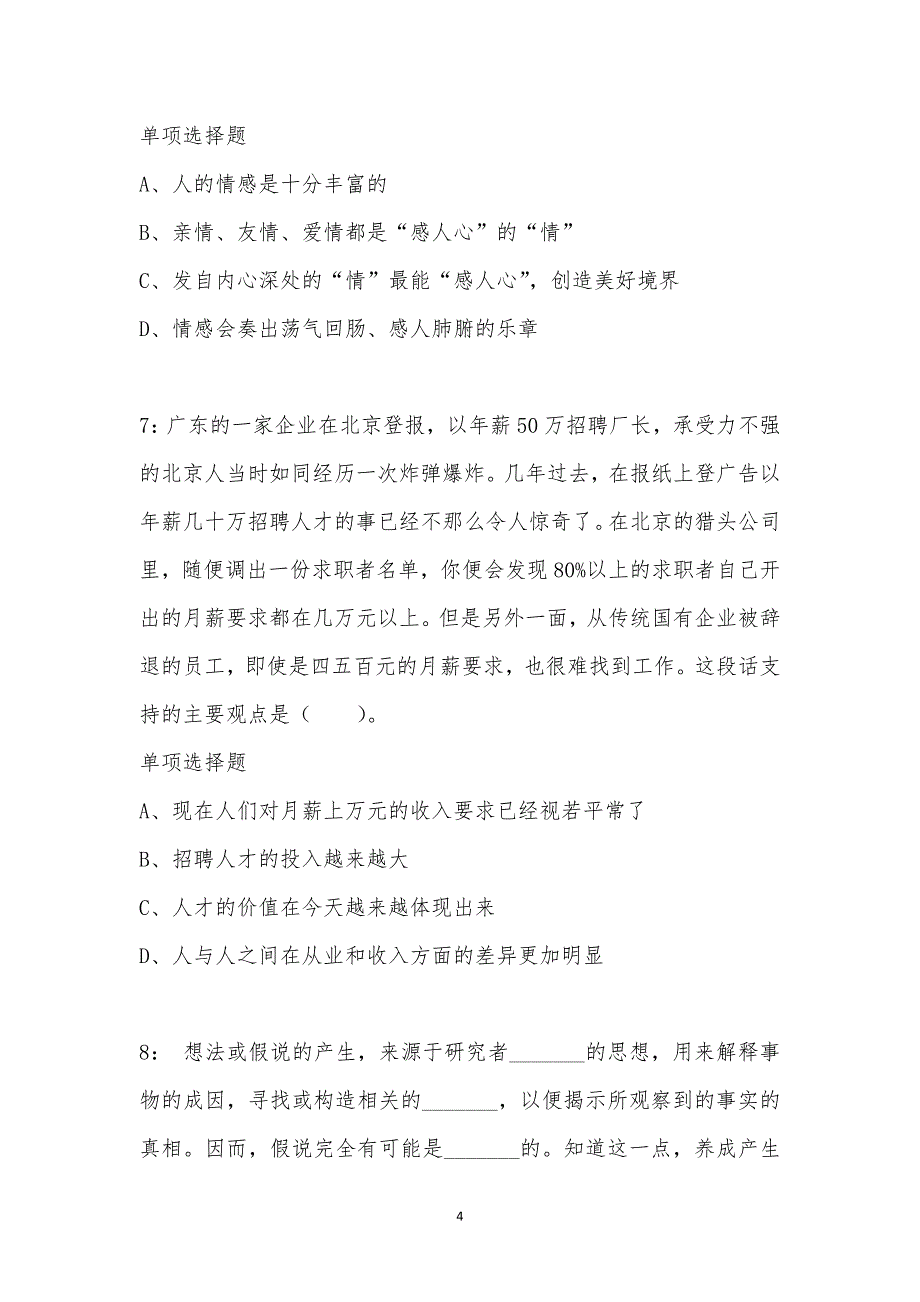 单项选择题
A、人的情感是十分丰富的
B、亲情、友情、爱情都是“感人心”的“情”
C、发自内心深处的“情”最能“感人心”，创造美好境界
D、情感会奏出荡气回肠、感人肺腑的乐章
7：广东的一家企业在北京登报，以年薪 50 万招聘厂长，承受力不强
的北京人当时如同经历一次炸弹爆炸。几年过去，在报纸上登广告以
年薪几十万招聘人才的事已经不那么令人惊奇了。在北京的猎头公司
里，随便调出一份求职者名单，你便会发现 80%以上的求职者自己开
出的月薪要求都在几万元以上。但是另外一面，从传统国有企业被辞
退的员工，即使是四五百元的月薪要求，也很难找到工作。这段话支
持的主要观点是（　　）。
单项选择题
A、现在人们对月薪上万元的收入要求已经视若平常了
B、招聘人才的投入越来越大
C、人才的价值在今天越来越体现出来
D、人与人之间在从业和收入方面的差异更加明显
8： 想法或假说的产生，来源于研究者_______的思想，用来解释事
物的成因，寻找或构造相关的_______，以便揭示所观察到的事实的
真相。因而，假说完全有可能是_______的。知道这一点，养成产生
4